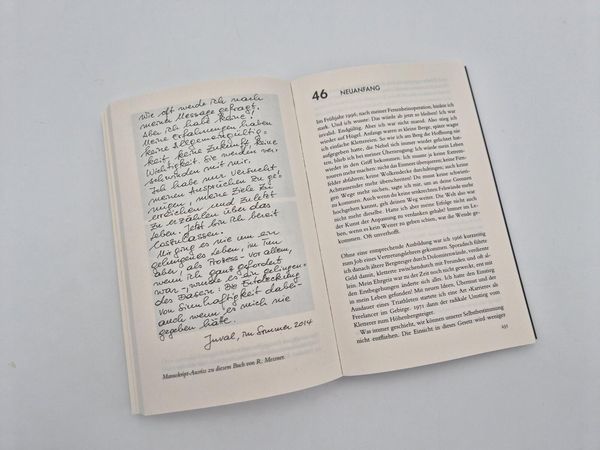 wie oft werde ich nach
meiner Message gefragt.
Aber ich habe keine!
Meine Erfahrungen haben
keine Allgemeingültig-
keit, keine Zukunft, keine
Wichtigkeit. Sie werden ver-
schwinden mit mir.
Ich habe nur versucht,
meinen Ansprüchen zu ge-
nügen, meine Ziele zu
erreichen und zuletzt
zu erzählen über das
Leben. Jetzt bin ich bereit
loszulassen.
Mir ging es nie um ein
gelungenes Leben, im Tun
aber, als Prozess – vor allem,
wenn ich ganz gefordert
war –, wurde es ein gelingen-
des Dasein: Die Entdeckung
von Sinnhaftigkeit dabei
auch wenn es mich nie
gegeben hätte.
Juval, im Sommer 2014
Manuskript-Auszüge zu diesem Buch von R. Messner.
46 NEUANFANG
Im Frühjahr 1996, nach meiner Fersenbeinoperation, hinkte ich
stark. Und ich wusste: Das würde ab jetzt so bleiben! Ich war
invalid. Endgültig. Aber ich war nicht morsch. Also stieg ich
wieder auf Hügel. Anfangs waren es kleine Berge, später wagte
ich einfache Klettereien. So wie ich am Berg die Hoffnung nie
aufgegeben hatte, die Nebel sich immer wieder gelichtet hat-
ten, blieb ich bei meiner Überzeugung: Ich würde mein Leben
wieder in den Griff bekommen. Ich musste ja keine Extrem-
touren mehr machen: nicht das Eismeer überqueren; keine Fern-
felder abfahren; keine Wolkendecke durchsteigen; auch keine
Achttausender mehr besteigen! Du musst keine schwieri-
gen Wege mehr suchen, sagte ich mir, um an deine Grenzen
zu kommen. Wenn du auch keine senkrechten Felswände mehr
hochgehen kannst, geh deinen Weg weiter. Die Welt also war
nicht mehr dieselbe. Hatte ich aber meine Erfolge nicht auch
der Kunst der Anpassung zu verdanken gehabt? Immer im Le-
ben, wenn es kein Weiter zu geben schien, war die Wende ge-
kommen. Oft unverhofft.
Ohne eine entsprechende Ausbildung war ich 1966 kurzzeitig
zum Job eines Vertretungslehrers gekommen. Sporadisch führte
ich danach ältere Bergsteiger durch Dolomitenwände, verdiente
Geld damit, kletterte zwischendurch mit Freunden und oft al-
lein. Mein Ehrgeiz war zu der Zeit noch nicht geweckt, erst mit
den Erstbegehungen änderte sich alles. Ich hatte den Einstieg
in mein Leben gefunden! Mit neuen Ideen, Übermut und der
Ausdauer eines Triathleten startete ich eine Art »Karriere« als
Freelancer im Gebirge. 1971 dann der radikale Umstieg vom
Kletterer zum Höhenbergsteiger.
Was immer geschieht, wir können unserer Selbstbestimmung
nicht entfliehen. Die Einsicht in dieses Gesetz wird weniger